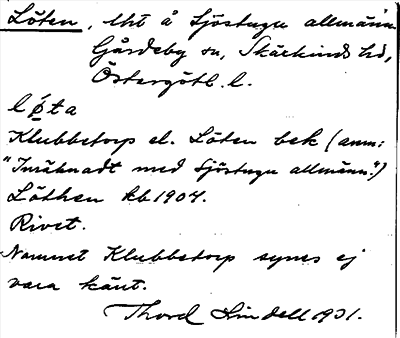 Löten, lht å Sjöstugu allmänn.
Gårdeby sn, Skärkinds hd,
Östergötl. l.
løta
Klubbetorp el. Löten bek (anm:
"Inräknadt med Sjöstugu allmänn.")
Löthen kb 1904.
Rivet.
Namnet Klubbetorp synes ej
vara känt.
Thord Lindell 1931.